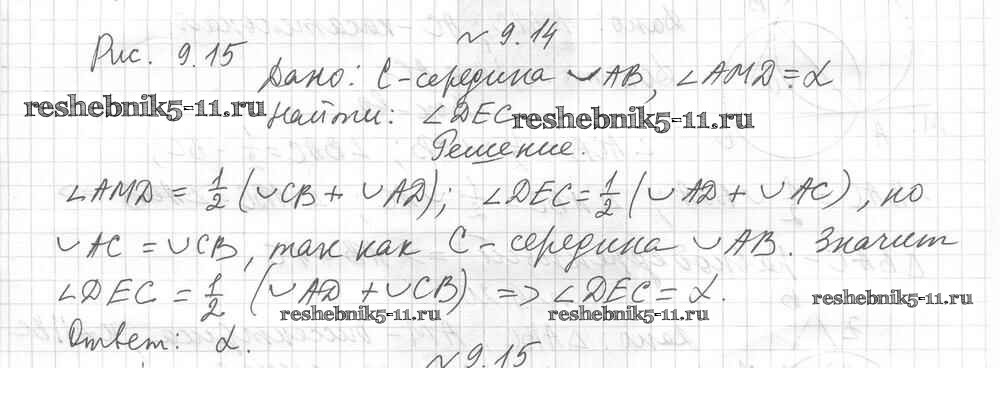 № 9.14
Рис. 9.15
Дано: С-середина ◡AB, ∠AMD = α
reshebnik5-11.ru
Найти: ∠DEC
reshebnik5-11.ru
Решение.
∠AMD = 1/2 (◡CB + ◡AD); ∠DEC = 1/2 (◡AD + ◡AC), но
◡AC = ◡CB, так как С-середина ◡AB. Значит
∠DEC = 1/2 (◡AD + ◡CB) => ∠DEC = α.
reshebnik5-11.ru
reshebnik5-11.ru
reshebnik5-11.ru
Ответ: α.
№ 9.15